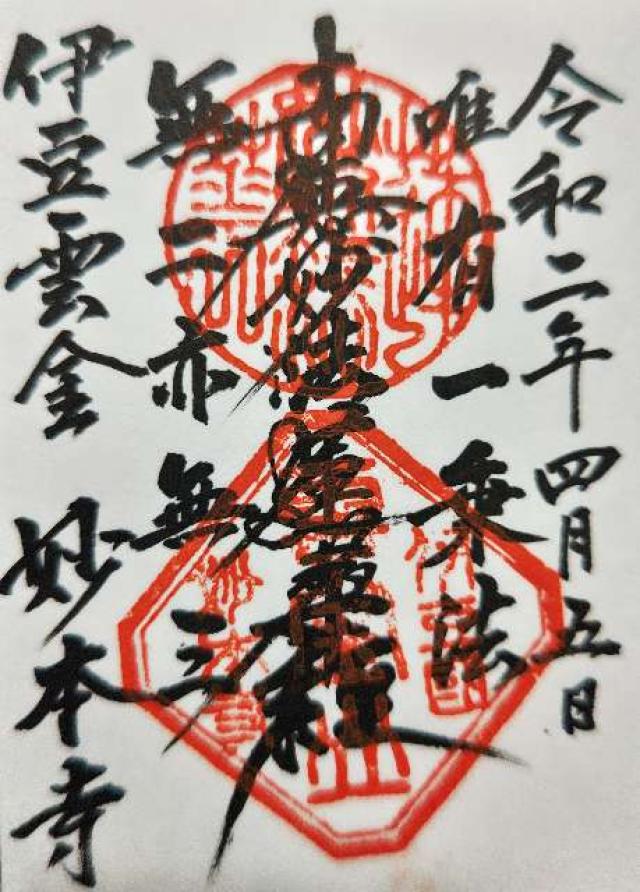 令和二年四月五日
唯有一乗法
南無妙法蓮華経
無二亦無三
伊豆雲金 妙本寺